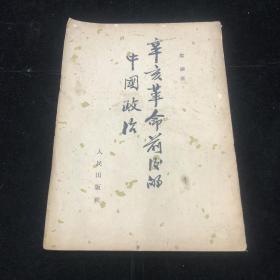 黎澍著
辛亥革命前後的
中國政治
人民出版社